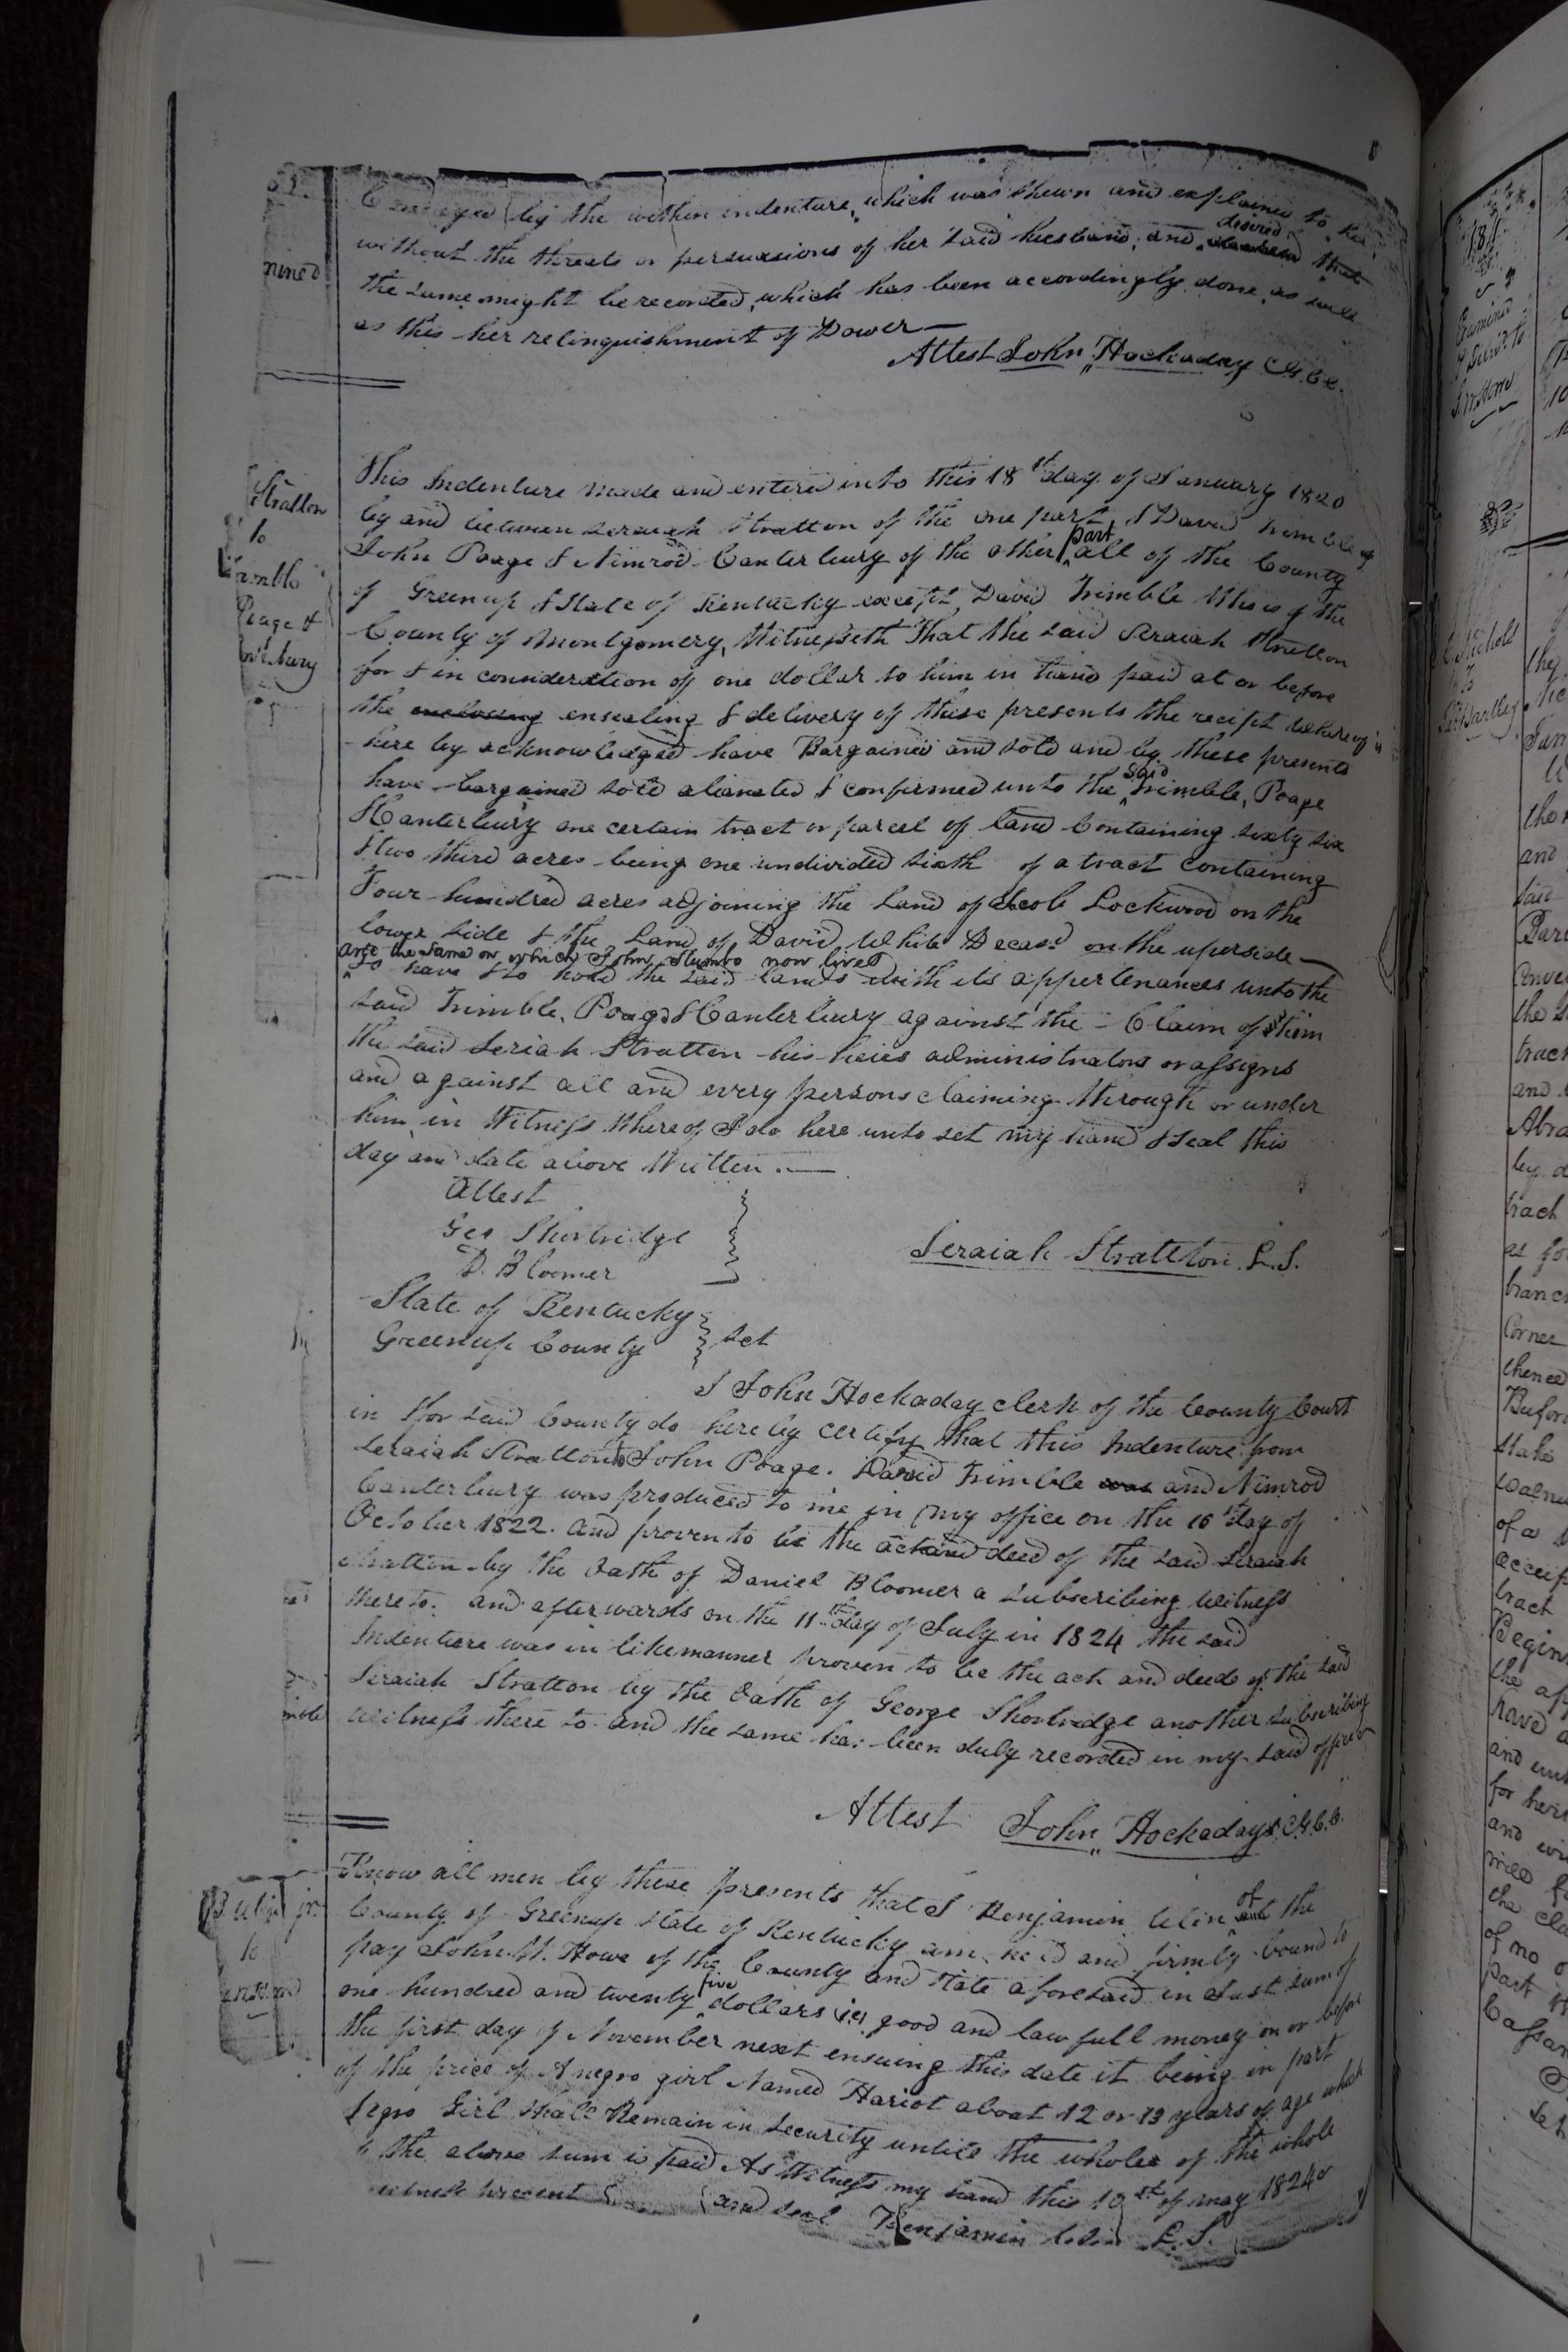 Conveyed by the within indenture, which was shewn and explained to her
without the threats or persuasions of her said husband, and desired that
the same might be recorded, which has been accordingly done, as well
as this her relinquishment of Dower
Attest John Hockaday C.G.C.C.
mined
Stratton
to
Trimble
Poage &
This Indenture made and entered into this 18st day of January 1820
by and between Seraiah Stratton of the one part, & David Trimble
John Poage & Nimrod Canterbury of the other part all of the County
of Greenup & State of Kentucky except David Trimble Who is of the
County of Montgomery, Witnesseth That the said Seraiah Stratton
for & in consideration of one dollar to him in hand paid at or before
the enclosing ensealing & delivery of these presents the recipt whereof is
here by acknowledged have Bargained and sold and by these presents
have bargained sold alianated & confirmed unto the said Trimble, Poage
& Canterbury one certain tract or parcel of land Containing sixty six
& two third acres being one undivided sixth of a tract containing
Four hundred acres adjoining the Land of Jacob Lockwood on the
lower side & the Land of David White Decasd on the uperside
and the same on which John Stumbo now lives
To have & to hold the said lands with its appertenances unto the
said Trimble, Poage & Canterbury against the Claim of him
the said Seriah Stratton his heirs administrators or assigns
and against all and every persons claiming through or under
him in Witness Whereof I do here unto set my hand & seal this
day and date above Written
Attest
Geo Shortridge
D. Bloomer
Seraiah Strattton L.S.
State of Kentucky
Greenup County } Sct
I John Hockaday clerk of the County Court
in & for said County do hereby certify that this Indenture from
Seraiah Stratton to John Poage. David Trimble was and Nimrod
Canterbury was produced to me in my office on the 16th day of
October 1822. and proven to be the act and deed of the said Seraiah
Stratton by the Oath of Daniel Bloomer a subscribing witness
thereto. and afterwards on the 11th day of July in 1824 the said
Indenture was in like manner proven to be the act and deed of the said
Seraiah Stratton by the Oath of George Shortridge another subscribing
witness there to and the same has been duly recorded in my said office
Attest John Hockaday C.G.C.C.
jr.
to
Know all men by these presents that I Benjamin Ulin of the
County of Greenup state of Kentucky am held and firmly bound to
pay John W. Howe of the County and state aforesaid in Just sum of
one hundred and twenty five dollars in good and lawfull money on or before
the first day of November next ensuing this date it being in part
of the price of A negro girl Named Hariot about 12 or 13 years of age which
Negro Girl shall Remain in security untill the whole of the whole
of the above sum is paid As Witness my hand this 10th of may 1824
witness present and seal Benjamin Ulin L.S.